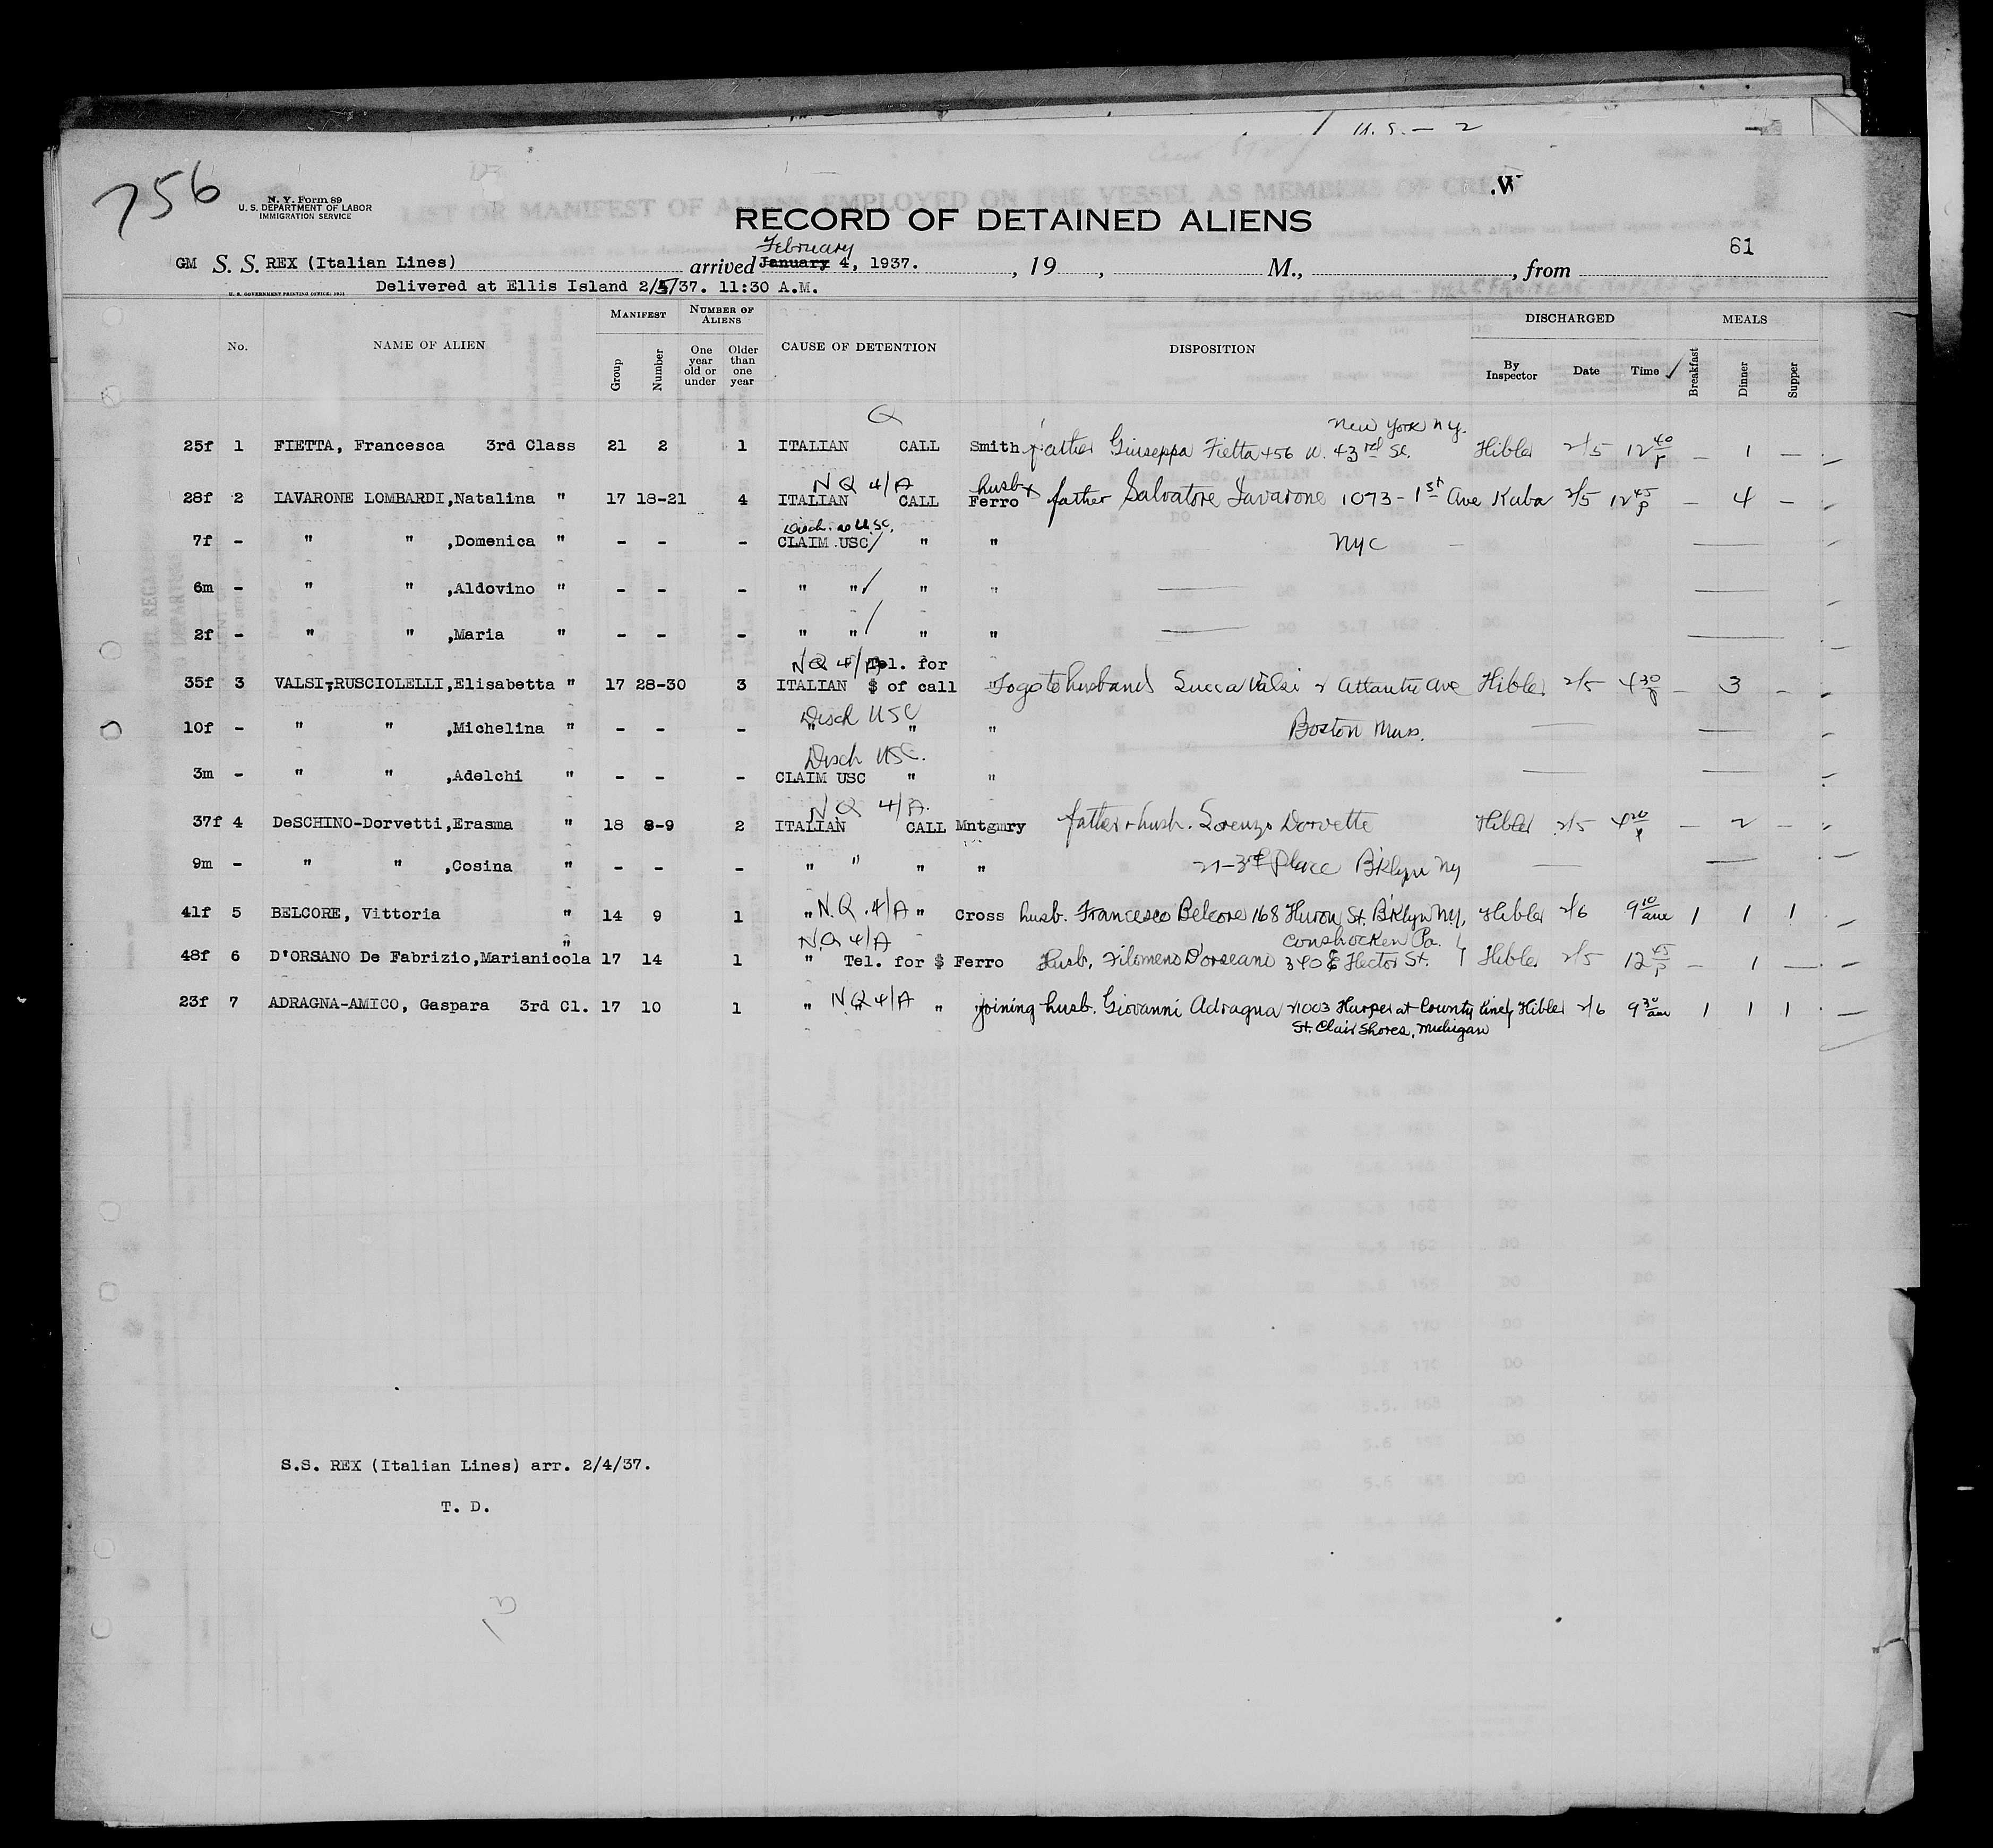 U.S. — 2
756
N. Y. Form 89
U. S. DEPARTMENT OF LABOR
IMMIGRATION SERVICE
.W
RECORD OF DETAINED ALIENS
61
February
GM S. S. REX (Italian Lines) arrived January 4, 1937. , 19 , M., , from
U. S. GOVERNMENT PRINTING OFFICE: 1931
Delivered at Ellis Island 2/5/37. 11:30 A.M.
No. NAME OF ALIEN MANIFEST Group Number NUMBER OF ALIENS One year old or under Older than one year CAUSE OF DETENTION DISPOSITION DISCHARGED By Inspector Date Time MEALS Breakfast Dinner Supper
Q New York N.Y.
25f 1 FIETTA, Francesca 3rd Class 21 2 1 ITALIAN CALL Smith father Giuseppa Fietta 456 W. 43rd St. Hibler 2/5 12 40 P — 1 —
NQ 4/A husb x
28f 2 IAVARONE LOMBARDI,Natalina " 17 18-21 4 ITALIAN CALL Ferro father Salvatore Iavarone 1073 - 1st Ave Kuba 2/5 12 45 P — 4 —
Disch. as U.S.C.
7f - " " ,Domenica " - - - CLAIM USC/ " " NYC —
6m - " " ,Aldovino " - - - " "/ " " —
2f - " " ,Maria " - - - " "/ " " —
NQ 4/A Tel. for "
35f 3 VALSI-RUSCIOLELLI,Elisabetta " 17 28-30 3 ITALIAN $ of call " To go to husband Lucca Valsi Atlantic Ave Hibler 2/5 4 30 P — 3 —
Disch USC
10f - " " ,Michelina " - - - " " " Boston Mass.
Disch USC.
3m - " " ,Adelchi " - - - CLAIM USC " "
NQ 4/A.
37f 4 DeSCHINO-Dorvetti,Erasma " 18 8-9 2 ITALIAN CALL Mntgmry father & husb. Lorenzo Dorvette Hibler 2/5 4 20 P — 2 —
9m - " " ,Cosina " - - - " " " " 21-3rd Place B'klyn NY
41f 5 BELCORE, Vittoria " 14 9 1 " N.Q. 4/A " Cross husb. Francesco Belcore 168 Huron St. B'klyn N.Y. Hibler 2/6 9 10 am 1 1 1
NQ 4/A Conshocken Pa.
48f 6 D'ORSANO De Fabrizio,Marianicola " 17 14 1 " Tel. for $ Ferro Husb. Filomeno D'orseano 340 E Hector St. Hibler 2/5 12 45 P — 1 —
23f 7 ADRAGNA-AMICO, Gaspara 3rd Cl. 17 10 1 " NQ 4/A " joining husb. Giovanni Adragna 21003 Harper at County Line, Hibler 2/6 9 30 am 1 1 1
St. Clair Shores, Michigan
S.S. REX (Italian Lines) arr. 2/4/37.
T. D.